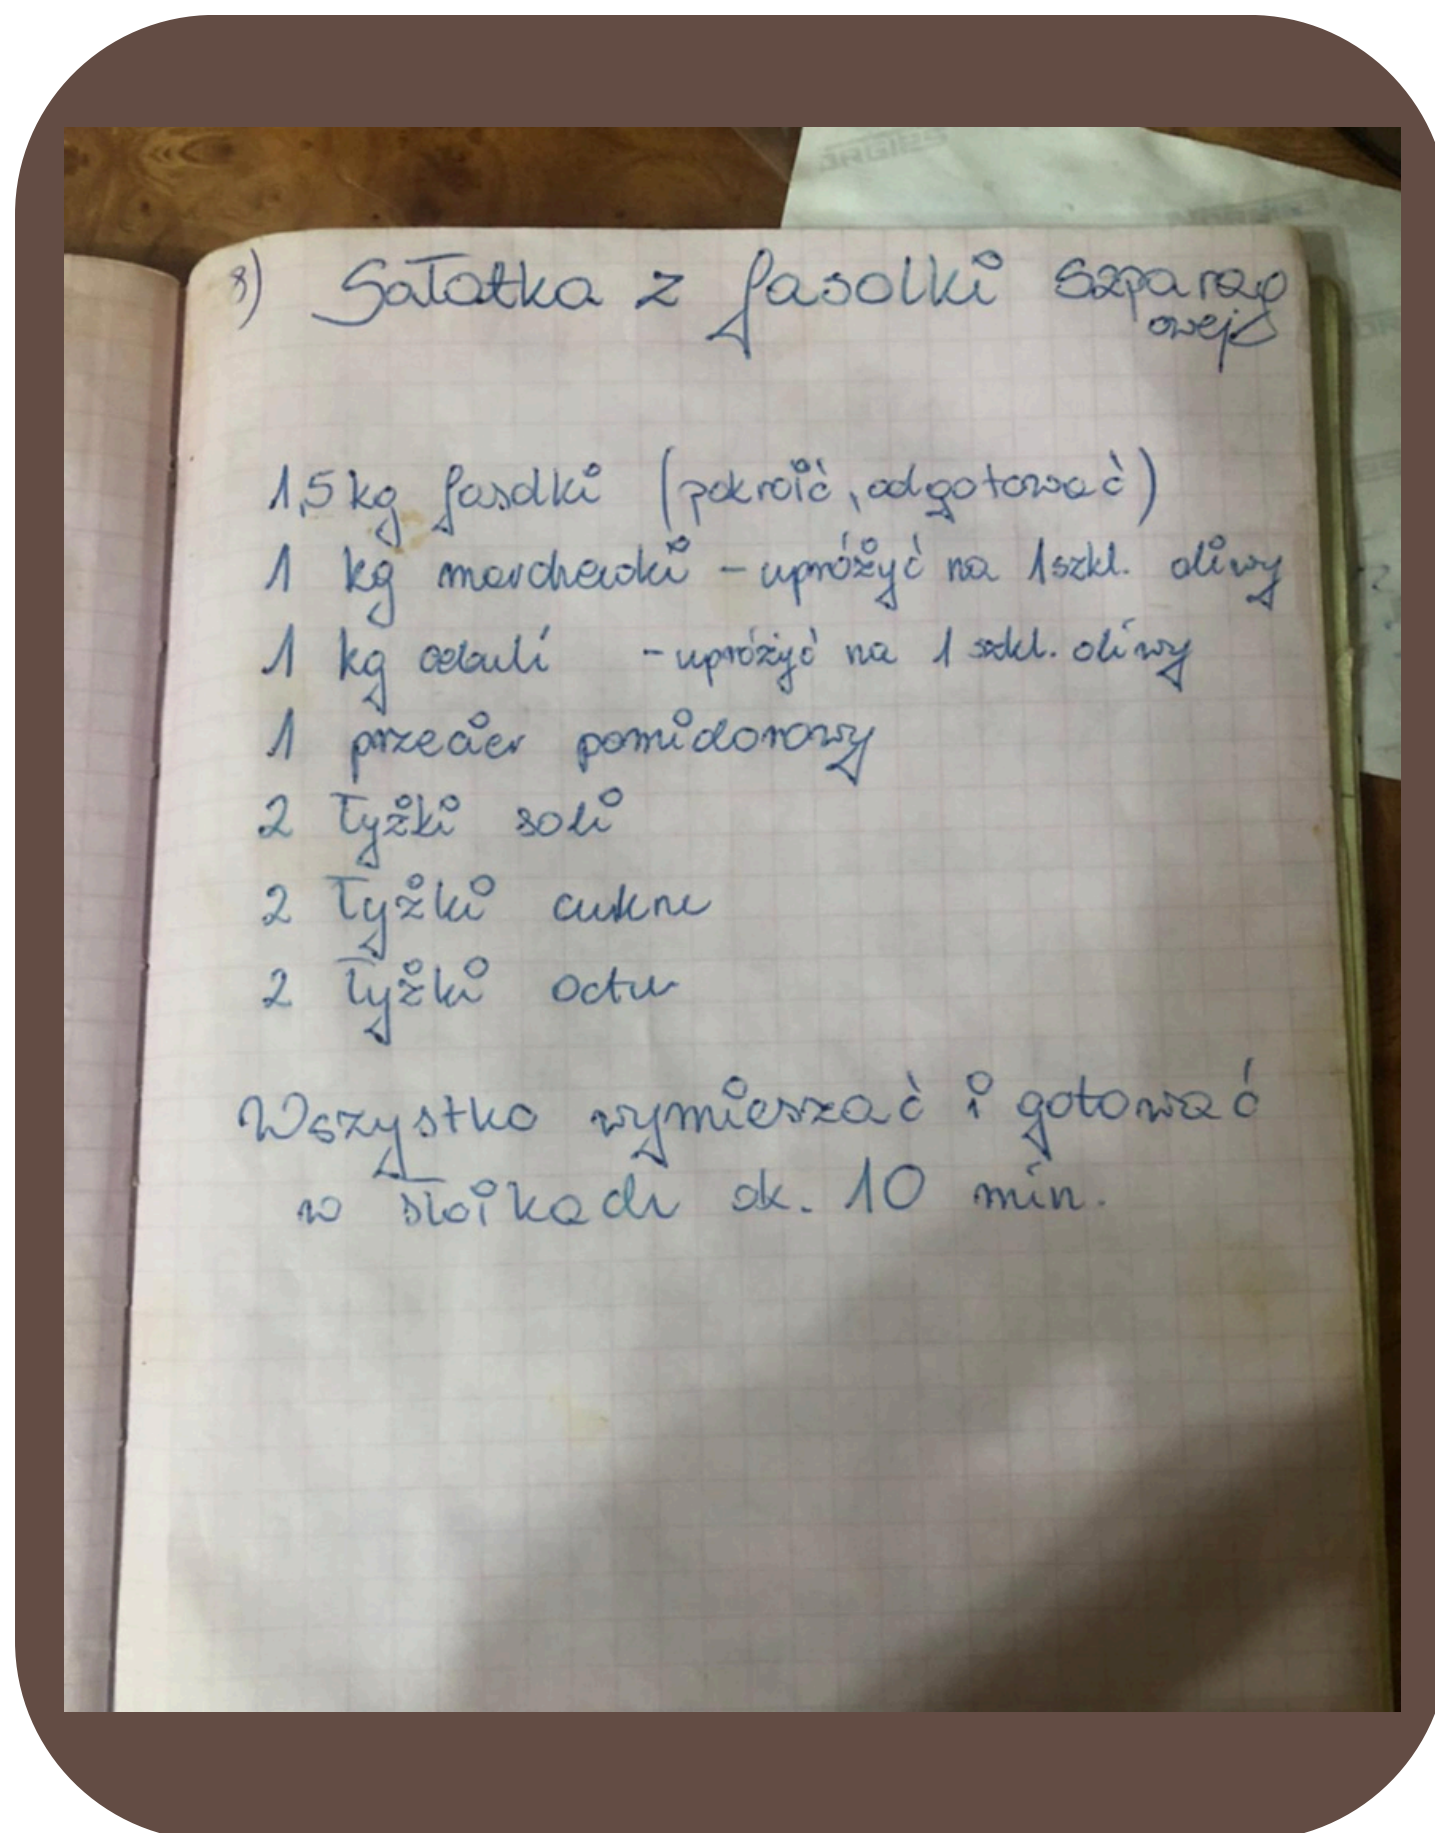 8) Sałatka z fasolki szparag
owej
1,5 kg fasolki (pokroić, odgotować)
1 kg marchewki - upróżyć na 1 szkl. oliwy
1 kg cebuli - upróżyć na 1 szkl. oliwy
1 przecier pomidorowy
2 łyżki soli
2 łyżki cukru
2 łyżki octu
Wszystko wymieszać i gotować
w słoikach ok. 10 min.